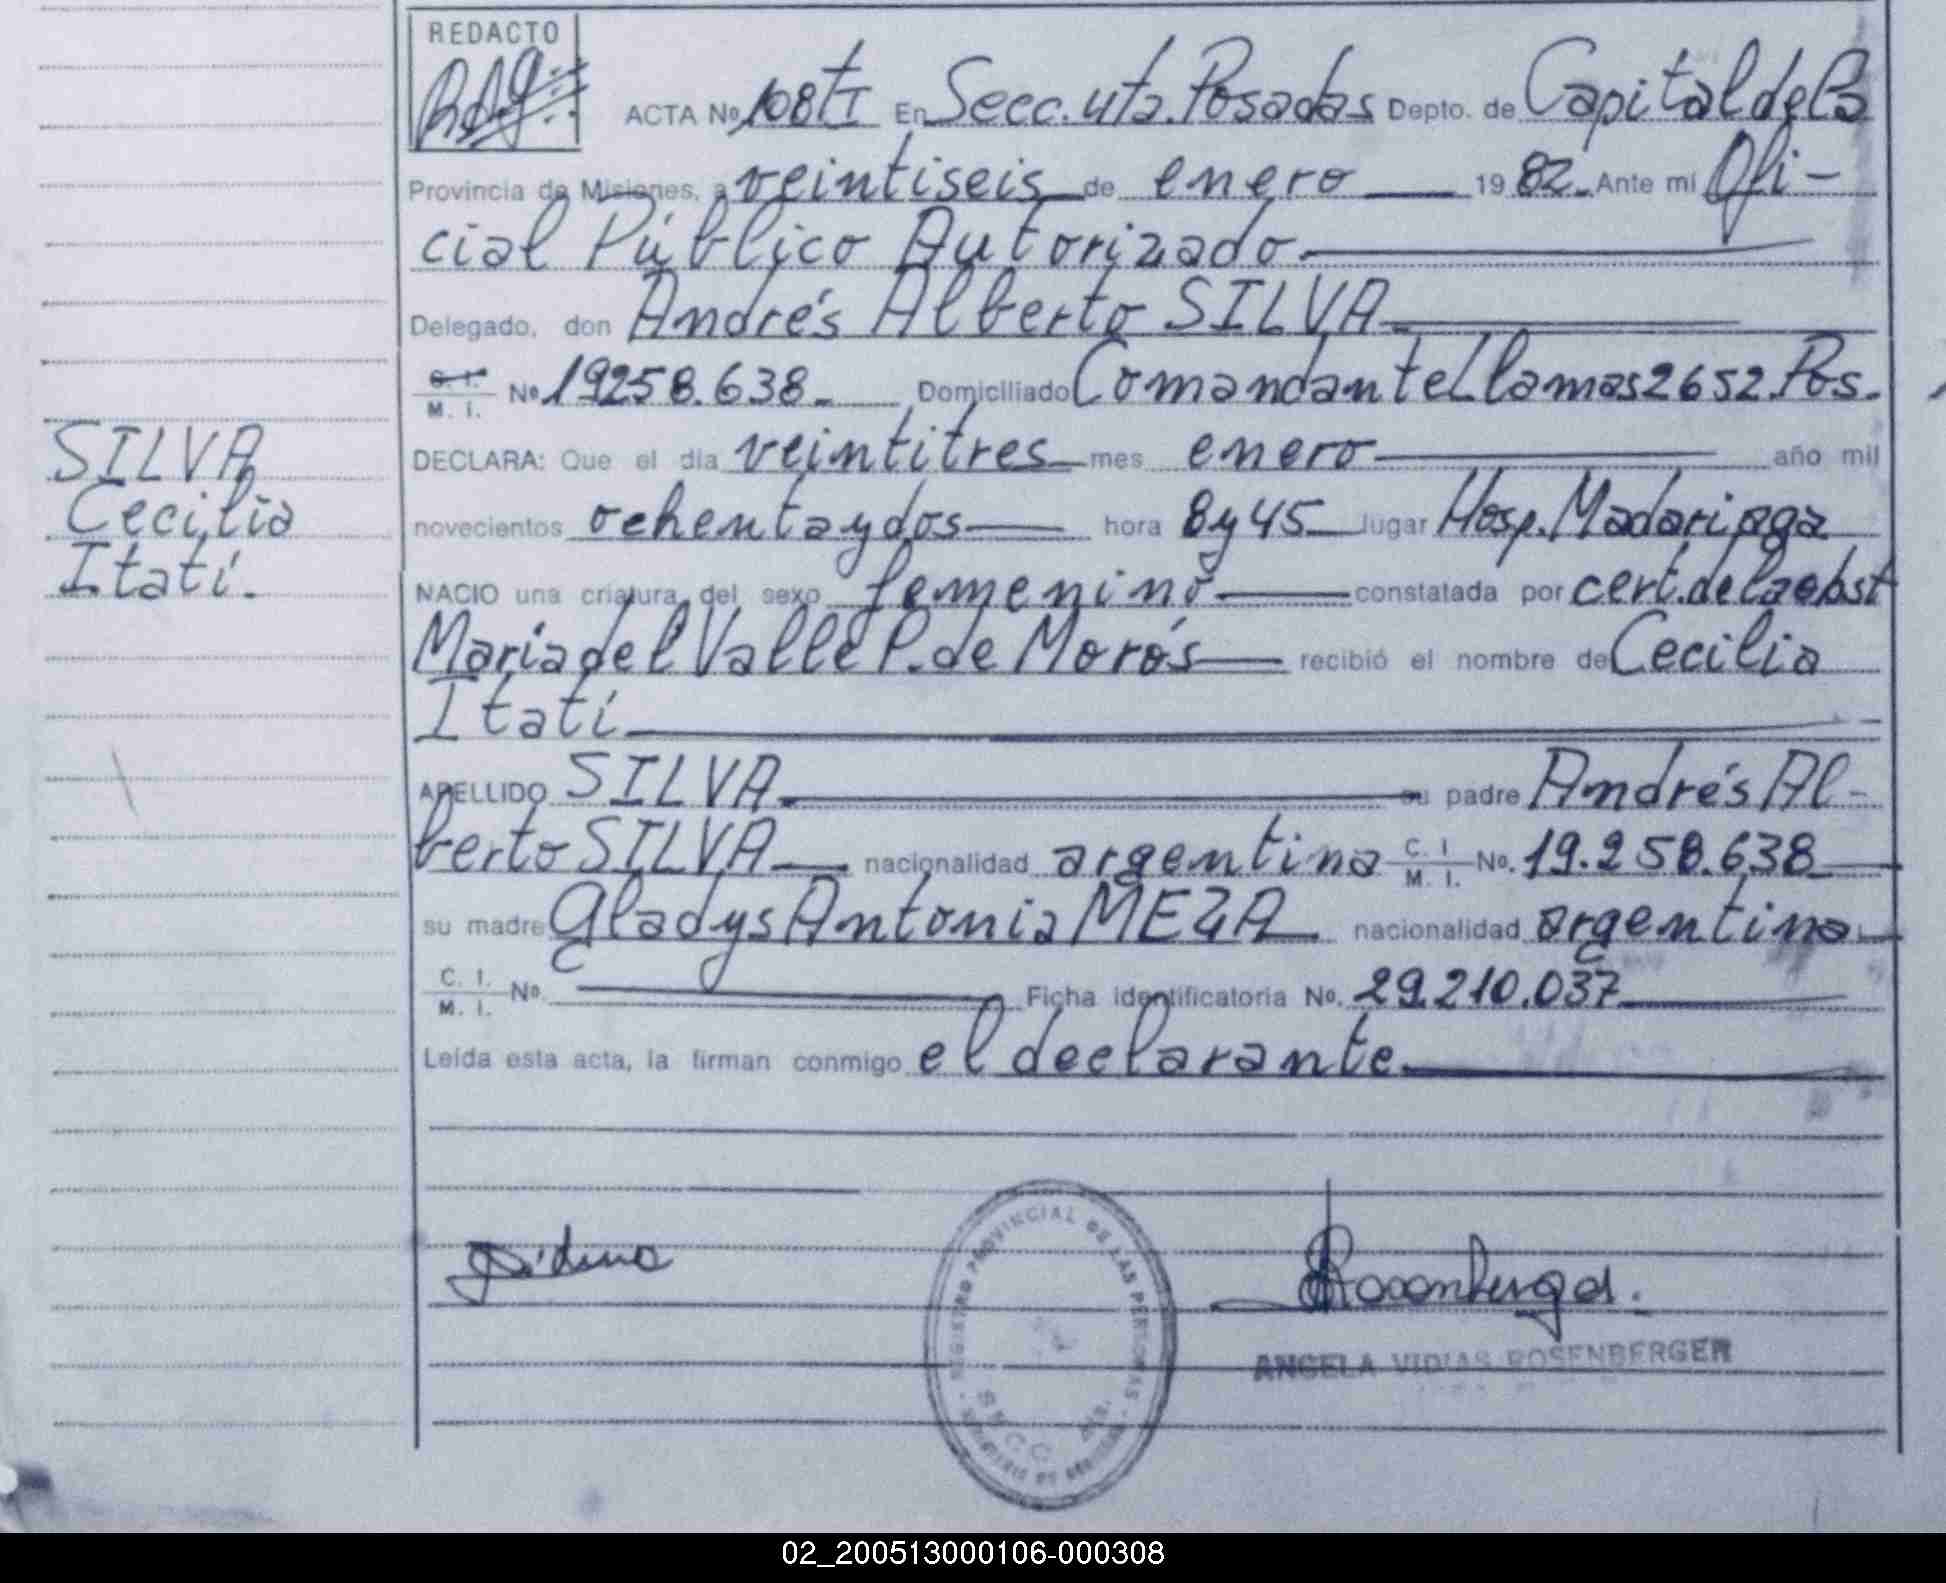 REDACTO
ACTA Nº 108 tI En Secc. 4ta. Posadas Depto. de Capital de la
Provincia de Misiones, a veintiseis de enero 19 82. Ante mí Ofi-
cial Público Autorizado
Delegado, don Andrés Alberto SILVA
C. I. M. I. Nº 19258.638. Domiciliado Comandante Llamas 2652. Pos.
DECLARA: Que el día veintitres mes enero año mil
SILVA
Cecilia
Itatí.
novecientos ochenta y dos hora 8 y 45 lugar Hosp. Madariaga
NACIO una criatura del sexo femenino constatada por cert. de la obst
María del Valle P. de Morós recibió el nombre de Cecilia
Itatí
APELLIDO SILVA su padre Andrés Al-
berto SILVA nacionalidad argentina C. I. M. I. No. 19.258.638
su madre Gladys Antonia MEZA. nacionalidad argentina
C. I. M. I. No. Ficha identificatoria No. 29.210.037
Leída esta acta, la firman conmigo el declarante.
REGISTRO PROVINCIAL DE LAS PERSONAS
SECC.
Rosenberger.
ANGELA VIDIAS ROSENBERGER
02_200513000106-000308